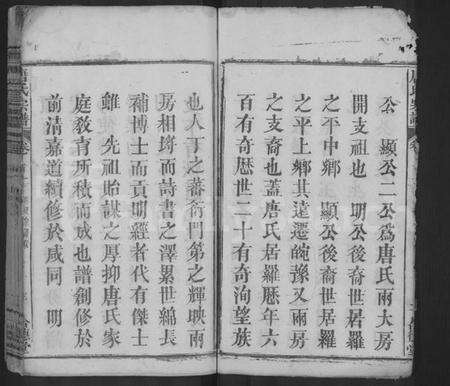 公　顯公二公爲唐氏兩大房
開支祖也　明公後裔世居羅
之平中鄉　顯公後裔世居羅
之平上鄉其遠遷皖豫又兩房
之支裔也蓋唐氏居羅歷年六
百有奇歷世二十有奇洵望族
也人丁之蕃衍門第之輝映兩
房相埒而詩書之澤累世綿長
補博士而貢明經者代有傑士
雖　先祖貽謀之厚抑唐氏家
庭敎育所積而成也譜創修於
前淸嘉道續修於咸同　明
唐氏宗譜